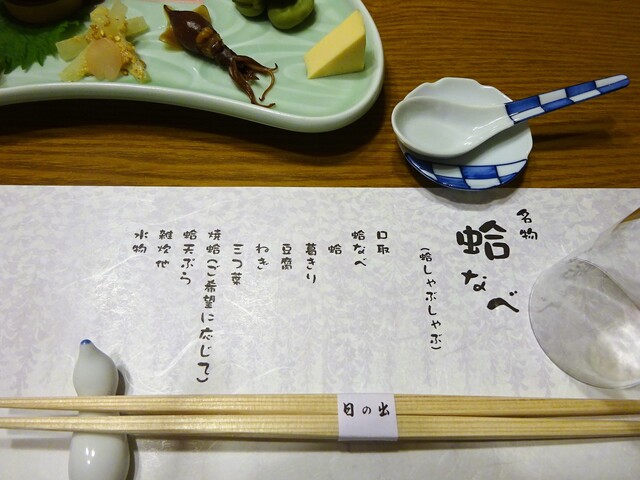 名物
蛤なべ
(蛤しゃぶしゃぶ)
口取
蛤なべ
蛤
葛きり
豆腐
ねぎ
三つ葉
焼蛤(ご希望に応じて)
蛤天ぷら
雑炊他
水物
日の出